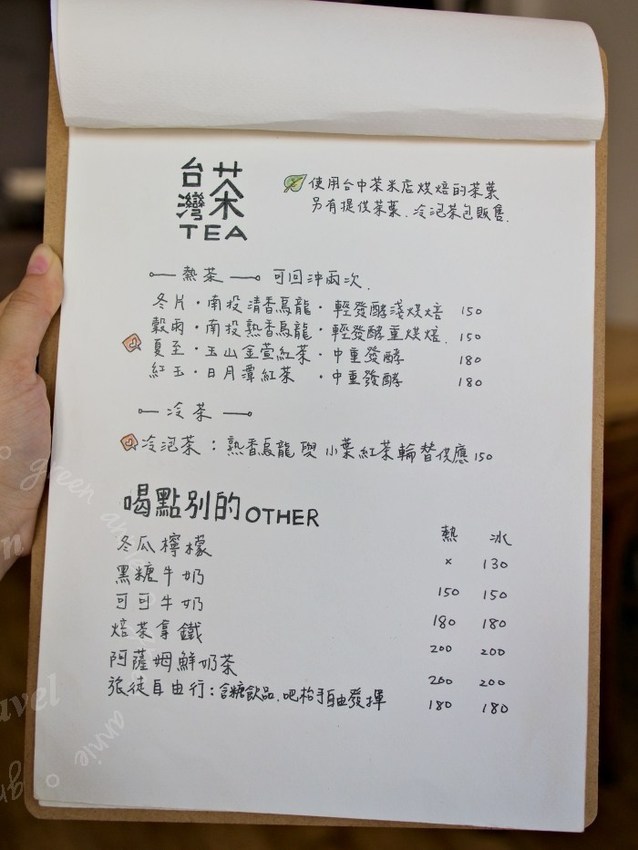 台灣茶
TEA
使用台中茶米店烘焙的茶葉
另有提供茶葉.冷泡茶包販售.
熱茶 可回沖兩次.
冬片·南投清香烏龍·輕發酵淺烘焙 150
穀雨·南投熟香烏龍·輕發酵重烘焙. 150
夏至·玉山金萱紅茶·中重發酵 180
紅玉·日月潭紅茶·中重發酵 180
冷茶
冷泡茶:熟香烏龍與小葉紅茶輪替供應 150
喝點別的 OTHER
熱 冰
冬瓜檸檬 x 130
黑糖牛奶 150 150
可可牛奶 180 180
焙茶拿鐵 200 200
阿薩姆鮮奶茶 200 200
張徒自由行:含糖飲品.吧枱手自由發揮 180 180
green
annie
travel